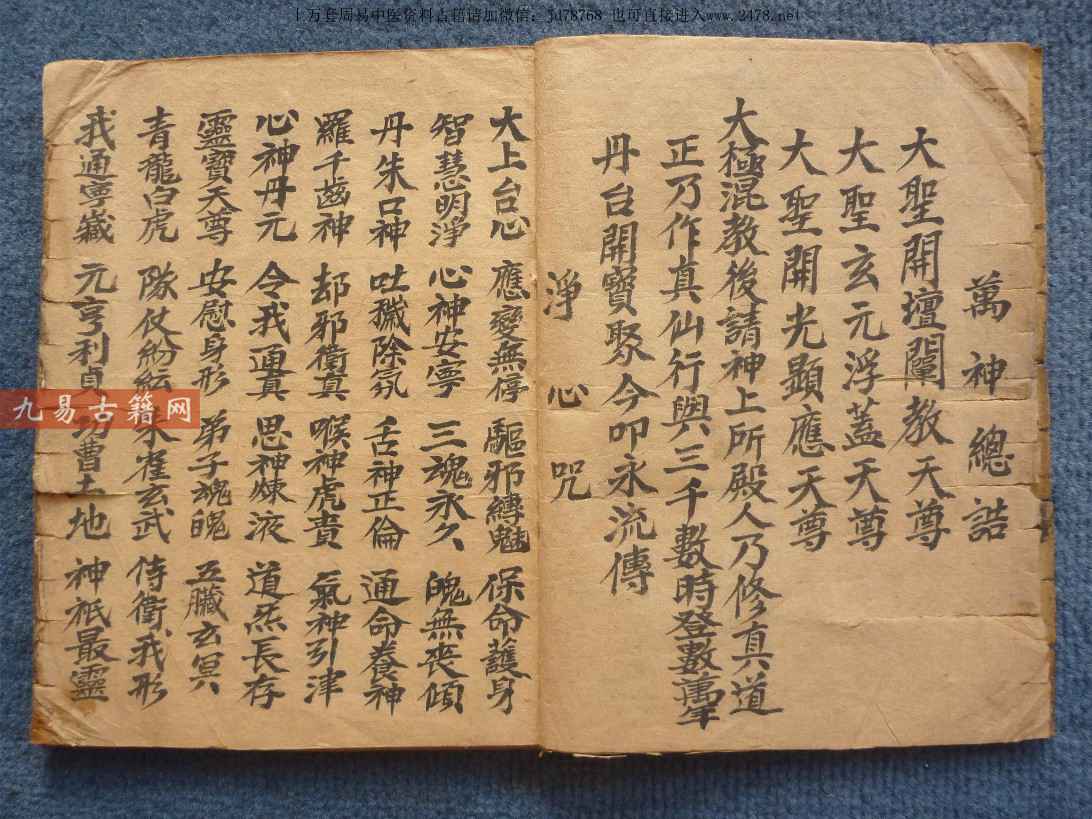 十万套周易中医资料古籍请加微信：jd78768 也可直接进入www.2478.net
萬神總誥
大聖開壇闡教天尊
大聖玄元浮蓋天尊
大聖開光顕應天尊
大極混教後請神上所殿人乃修真道
正乃作真仙行與三千數時登數萬年
丹台開寶聚今叩永流傳
淨心咒
大上台心 應變無停 驅邪縛魅 保命護身
智慧明淨 心神安寧 三魂永久 魄無喪傾
丹朱口神 吐穢除氛 舌神正倫 通命養神
羅千齒神 却邪衛真 喉神虎賁 氣神引津
心神丹元 令我通真 思神煉液 道炁長存
靈寶天尊 安慰身形 弟子魂魄 五臟玄冥
青龍白虎 隊仗紛紜 朱雀玄武 侍衛我形
我通寧藏 元亨利貞 功曹土地 神祇最靈
九易古籍网